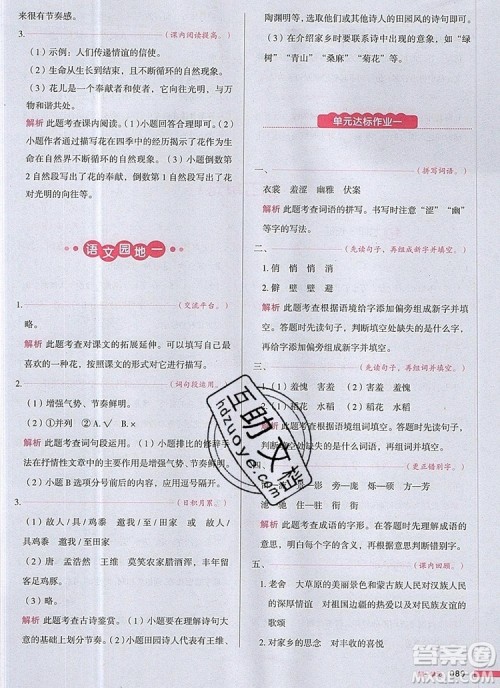 来很有节奏感。
3.（课内阅读提高。）
（1）示例：人们传递情谊的信使。
（2）生命从生长到结束，且不断循环的自然现象。
（3）花儿是一个奉献者和使者，它向往光明，与人为善。
解析 此题考查课内阅读。（1）小题回答合理即可。（2）小题作者通过描写花在四季中的经历揭示了生命的生生不息和不断循环的自然现象。倒数第2自然段写出了花的奉献，倒数第1自然段写出了花对光明的向往。
语文园地一
1.（交流平台。）
略。
解析 此题考查对课文的拓展延伸。可以写出自己最喜欢的一种花，按照课文的形式对它进行描写。
2.（词句段运用。）
（1）增强气势、节奏鲜明。
（2）①并列 ②A.√ B.
解析 此题考查词句段运用。（1）小题排比的修辞手法在抒情性文章中的主要作用是增强气势、节奏鲜明。
（2）小题B选项分号前后不是并列，应用逗号隔开。
3.（日积月累。）
（1）故人/具/鸡黍 邀我/至/田家 或 故人/具鸡黍 邀我/至田家
（2）唐 孟浩然 王维 莫笑农家腊酒浑，丰年留客足鸡豚。
（3）略。
解析 此题考查古诗鉴赏。（1）小题要在理解诗句大意的基础上划分节奏。（2）小题田园诗人代表有王维、
陶渊明等，也可以积累其他诗人的田园风的诗句和诗名。
（3）在介绍家乡时要联系诗中出现的意象，如“绿树”“青山”“桑麻”“菊花”等。
单元达标作业一
一、（拼写词语。）
衣裳 羞涩 幽雅 伏案
解析 此题考查词语的拼写。要注意“涩”“幽”等字的写法。
二、（先读句子，再组成新字并填空。）
1. 俏 悄 消
2. 僻 壁 避
解析 此题考查根据语境给字添加偏旁组成新字并填空。答题时先读句子，判断空格处缺失的是什么字，再给字添加偏旁组成新字并填空。
三、（先读句子，再组词并填空。）
1. ①羞愧 ②羞愧
2. ①稻花 ②稻花
解析 此题考查根据语境组词并填空。答题时先读句子，判断空格处缺失的是什么词语，再组词并填空。
四、（更正错别字。）
解析 此题考查成语的字形。答题时先理解成语的意思，再判断成语中的错别字，最后更正错别字。
五、（课内回顾。）
1. 老舍 大草原的美丽景色和蒙古族人民与汉族人民的深厚情谊 对祖国边疆的热爱以及对民族团结的歌颂
2. 对家乡的思念 对丰收的喜悦
互助文档
hdzuoye.com
089
答案圈
MXQE.COM